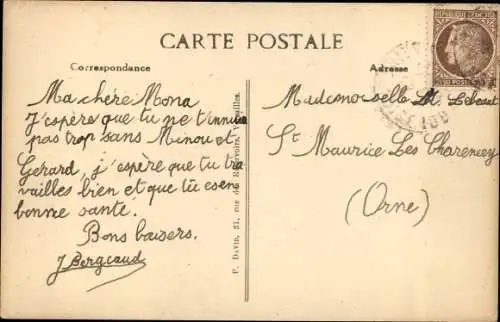 CARTE POSTALE
Correspondance
Ma chère Mona
J'espère que tu ne t'ennuie
pas trop sans Minou et
Gerard, j'espère que tu tra
vailles bien et que tu es en
bonne santé.
Bons baisers.
J Bergeaud
P. David, 21, rue des Réservoirs, Versailles.
Adresse
REPUBLIQUE FRANÇAISE
Mademoiselle M. Lebeau
St Maurice Les Charencey
(Orne)